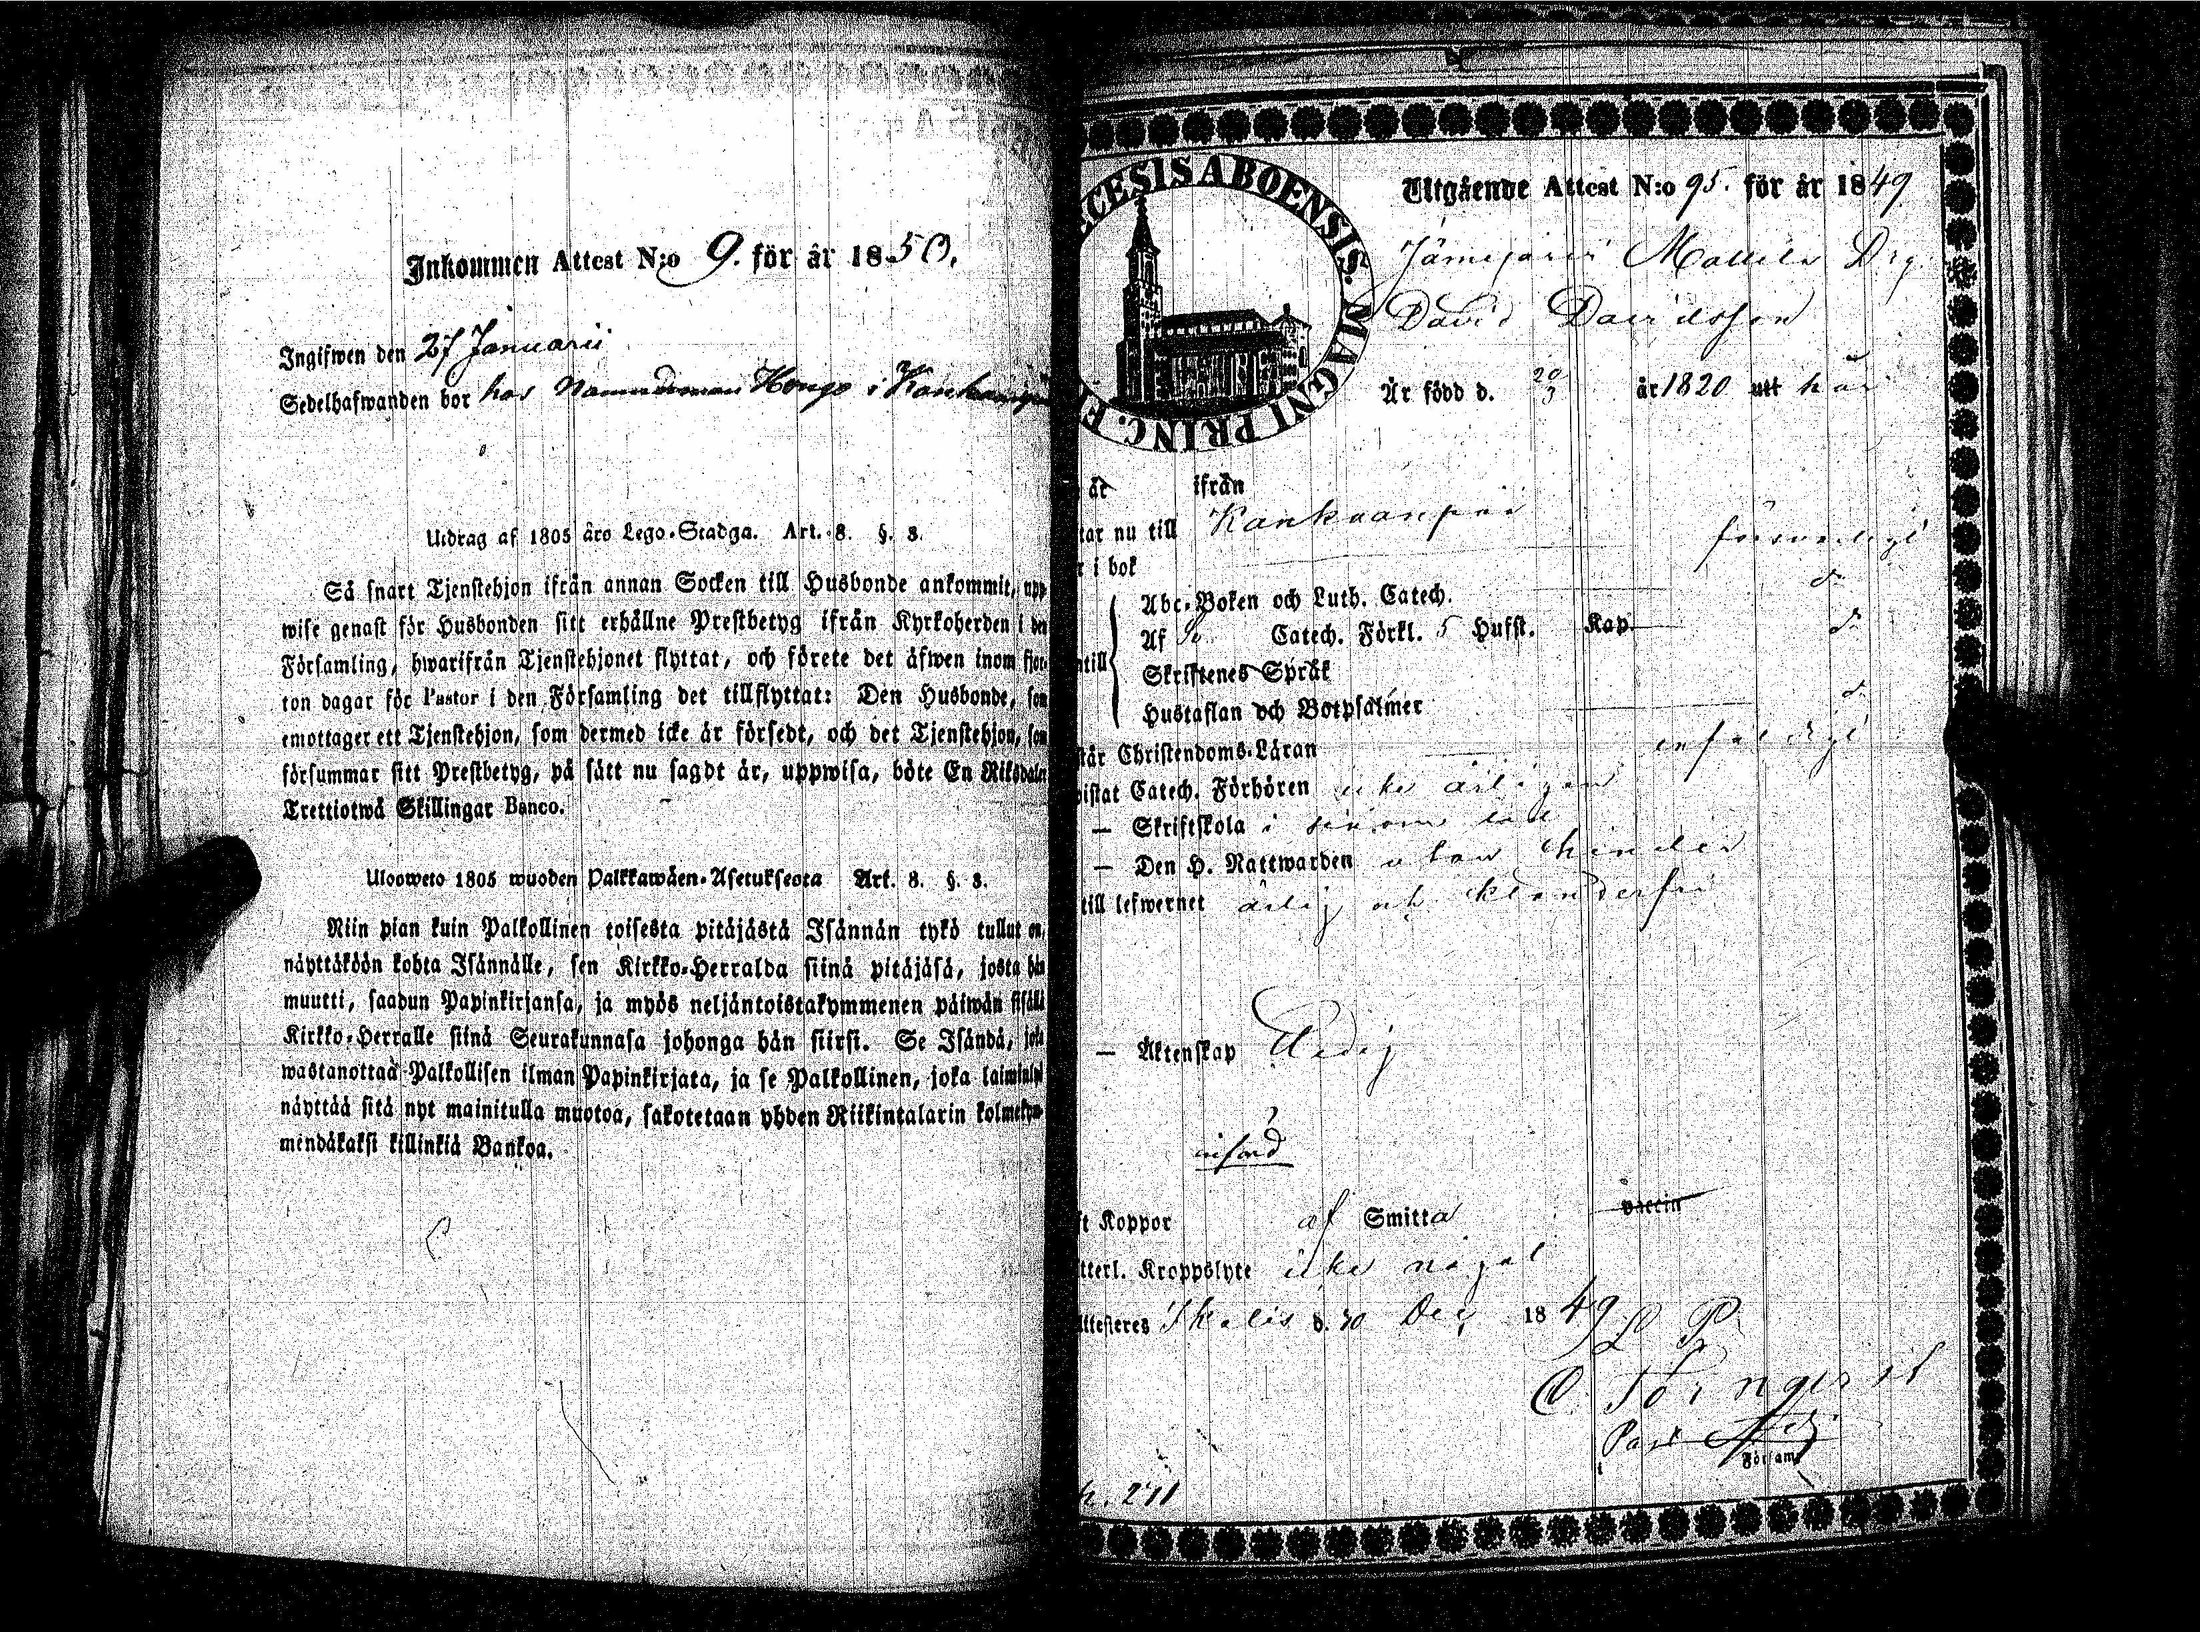 Inkommen Attest N:o 9. för år 1850.
Ingifwen den 27 Januarii
Sedelhafwanden bor hos Nämndeman Hongo i Kankaanpä
Utdrag af 1805 års Lego-Stadga. Art. 8. §. 8.
Så snart Tjenstehjon ifrån annan Socken till Husbonde ankommit, upp-
wise genast för Husbonden sitt erhållne Prestbetyg ifrån Kyrkoherden i den
Församling, hwarifrån Tjenstehjonet flyttat, och förete det äfwen inom fjor-
ton dagar för Pastor i den Församling det tillflyttat: Den Husbonde, som
emottager ett Tjenstehjon, som dermed icke är försedt, och det Tjenstehjon, som
försummar sitt Prestbetyg, på sätt nu sagdt är, uppwisa, böte En Riksdaler
Trettiotwå Skillingar Banco.
Uloosweto 1805 wuoden Palkkawäen-Asetuksesta Art. 8. §. 8.
Niin pian kuin Palkollinen toisesta pitäjästä Isännän tykö tullut on,
näyttäköön kohta Isännälle, sen Kirkko-Herralda siinä pitäjäsä, josta hän
muutti, saadun Papinkirjansa, ja myös neljäntoistakymmenen päiwän sisällä
Kirkko-Herralle siinä Seurakunnasa johonga hän siirsi. Se Isändä, joka
wastanottaa Palkollisen ilman Papinkirjata, ja se Palkollinen, joka laiminlyö
näyttää sitä nyt mainitulla muotoa, sakotetaan yhden Riikintalarin kolmekym-
mendäkaksi killinkiä Bankoa.
CESIS ABOENSIS. MAGNI PRINC. F
Utgående Attest N:o 95. för år 1849
Jämijärvi Mattila Drg
David Davidsson
Är född d. 20/3 år 1820 utt här
år ifrån
tar nu till Kankaanpää
r i bok försvarligt
Abc-Boken och Luth. Catech. d:o
Af Sv. Catech. Förkl. 5 Hufst. Kap. d:o
ntill Skriftenes Språk
Hustaflan och Botpsalmer d:o
står Christendoms-Läran enfaldigt
vistat Catech. Förhören icke årligen
— Skriftskola i sinom tid
— Den H. Nattwarden utan hinder
till lefwernet ärlig och klanderfri
— Äktenskap Ledig
införd
ft Koppor af Smitta vaccin
tterl. Kroppslyte icke något
ttesteres Ikalis d. 30 Dec 1849
L P
Församl
p. 211